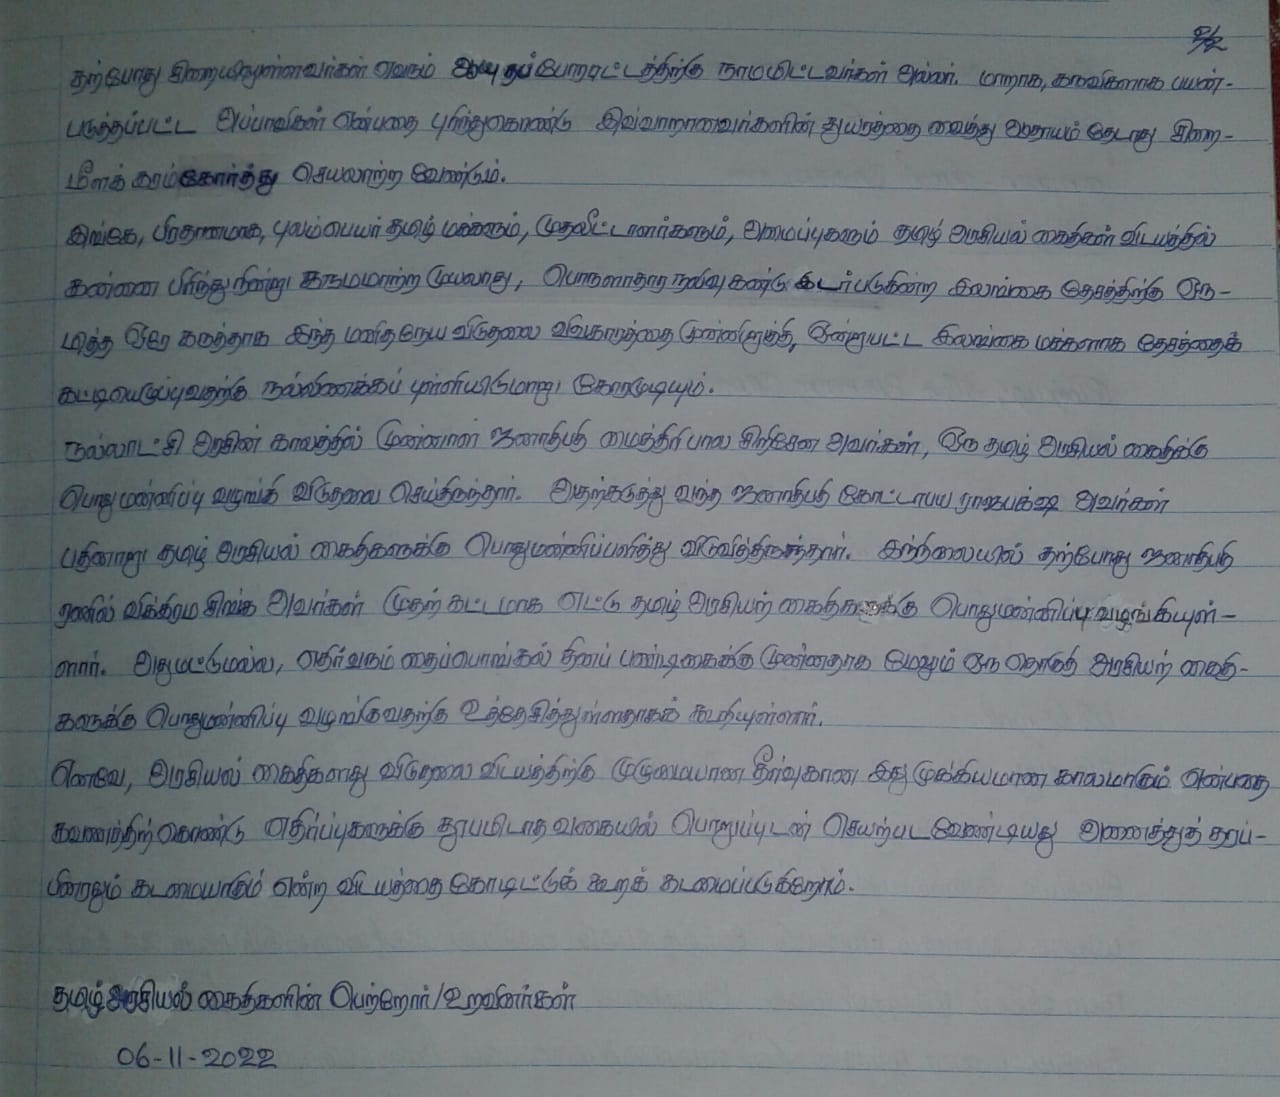 2/2
தற்போது சிறையிலுள்ளவர்கள் எவரும் ஆயுதப்போராட்டத்திற்கு நாமமிட்டவர்கள் அல்லர். மாறாக, கருவிகளாக பயன்-
படுத்தப்பட்ட அப்பாவிகள் என்பதை புரிந்துகொண்டு இவ்வாறானவர்களின் துயரத்தை வைத்து ஆதாயம் தேடாது சிறை-
மீளக் கரம்கோர்த்து செயலாற்ற வேண்டும்.
இங்கே, பிரதானமாக, புலம்பெயர் தமிழ் மக்களும், முதலீட்டாளர்களும், அமைப்புகளும் தமிழ் அரசியல் கைதிகள் விடயத்தில்
தன்னை பிரிந்துநின்று கருமமாற்ற முயலாது, பொருளாதார நலிவு கண்டு இடர்படுகின்ற இலங்கை தேசத்திற்கு ஒரு-
மித்த ஒரே கருத்தாக இந்த மனிதநேய விடுதலை விவகாரத்தை முன்னிறுத்தி, ஒன்றுபட்ட இலங்கை மக்களாக தேசத்தைக்
கட்டியெழுப்புவதற்கு நல்லிணக்கப் புள்ளியிடுமாறு கோரமுடியும்.
நல்லாட்சி அரசின் காலத்தில் முன்னாள் ஜனாதிபதி மைத்திரிபால சிறிசேன அவர்கள், ஒரு தமிழ் அரசியல் கைதிக்கு
பொதுமன்னிப்பு வழங்கி விடுதலை செய்திருந்தார். அதற்கடுத்து வந்த ஜனாதிபதி கோட்டாபய ராஜபக்ஷ அவர்கள்
பதினாறு தமிழ் அரசியல் கைதிகளுக்கு பொதுமன்னிப்பளித்து விடுவித்திருந்தார். இந்நிலையில் தற்போது ஜனாதிபதி
ரணில் விக்கிரம சிங்க அவர்கள் முதற் கட்டமாக எட்டு தமிழ் அரசியற் கைதிகளுக்கு பொதுமன்னிப்பு வழங்கியுள்-
ளார். அதுமட்டுமல்ல, எதிர்வரும் தைப்பொங்கல் தினப் பண்டிகைக்கு முன்னதாக மேலும் ஒரு தொகுதி அரசியற் கைதி-
களுக்கு பொதுமன்னிப்பு வழங்குவதற்கு உத்தேசித்துள்ளதாகக் கூறியுள்ளார்.
எனவே, அரசியல் கைதிகளது விடுதலை விடயத்திற்கு முழுமையான தீர்வுகாண இது முக்கியமான காலமாகும் என்பதை
கவனத்திற்கொண்டு எதிர்ப்புகளுக்கு தூபமிடாத வகையில் பொறுப்புடன் செயற்பட வேண்டியது அனைத்துத் தரப்-
பினரதும் கடமையாகும் என்ற விடயத்தை கோடிட்டுக் கூறக் கடமைப்படுகிறோம்.
தமிழ் அரசியல் கைதிகளின் பெற்றோர்/உறவினர்கள்
06-11-2022